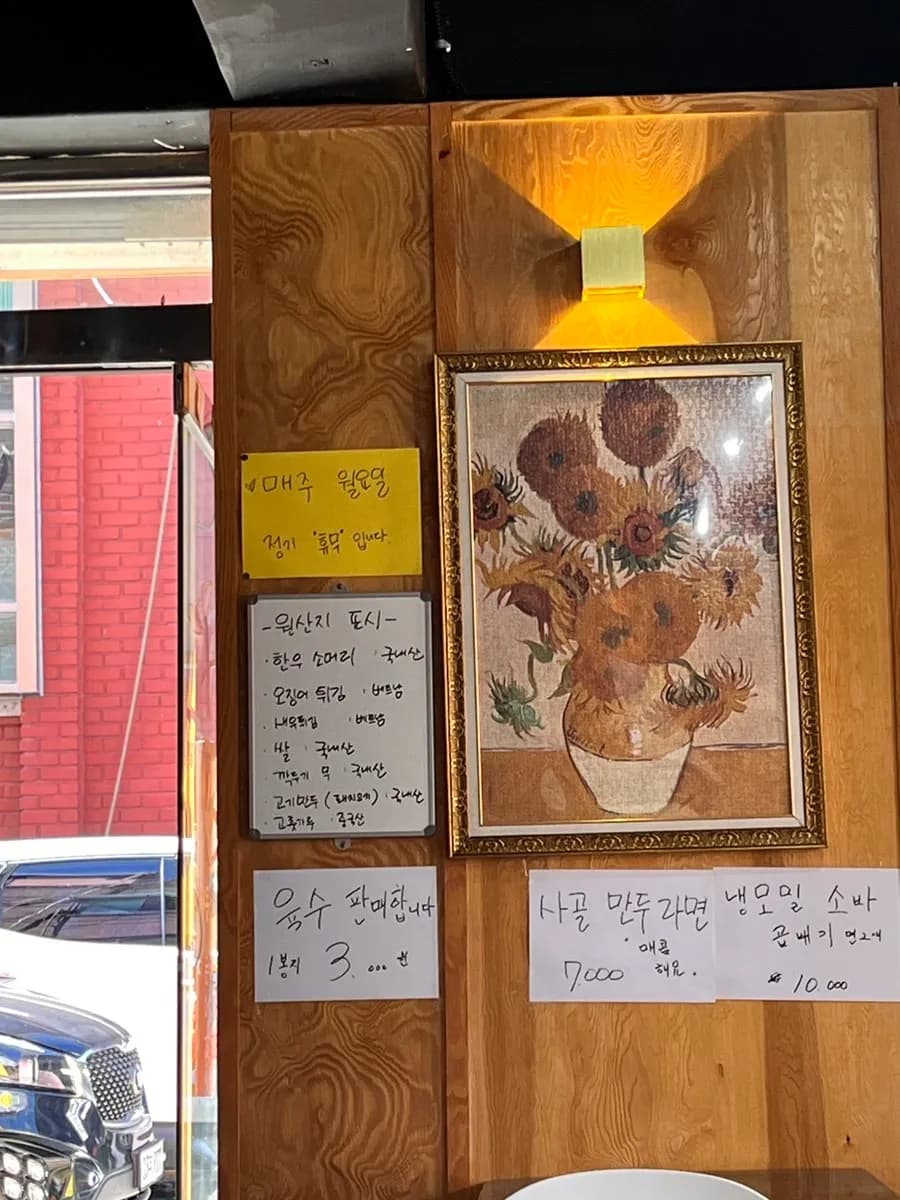 매주 월요일
정기 "휴무" 입니다.
-원산지 표시-
· 한우 소머리 : 국내산
· 오징어 튀김 : 베트남
· 새우튀김 : 베트남
· 쌀 : 국내산
· 깍두기 무 : 국내산
· 고기만두 (돼지고기) : 국내산
· 고춧가루 : 중국산
육수 판매합니다
1봉지 3.000원
사골 만두라면
· 매콤
해요.
7.000
냉모밀 소바
곱배기
10.000